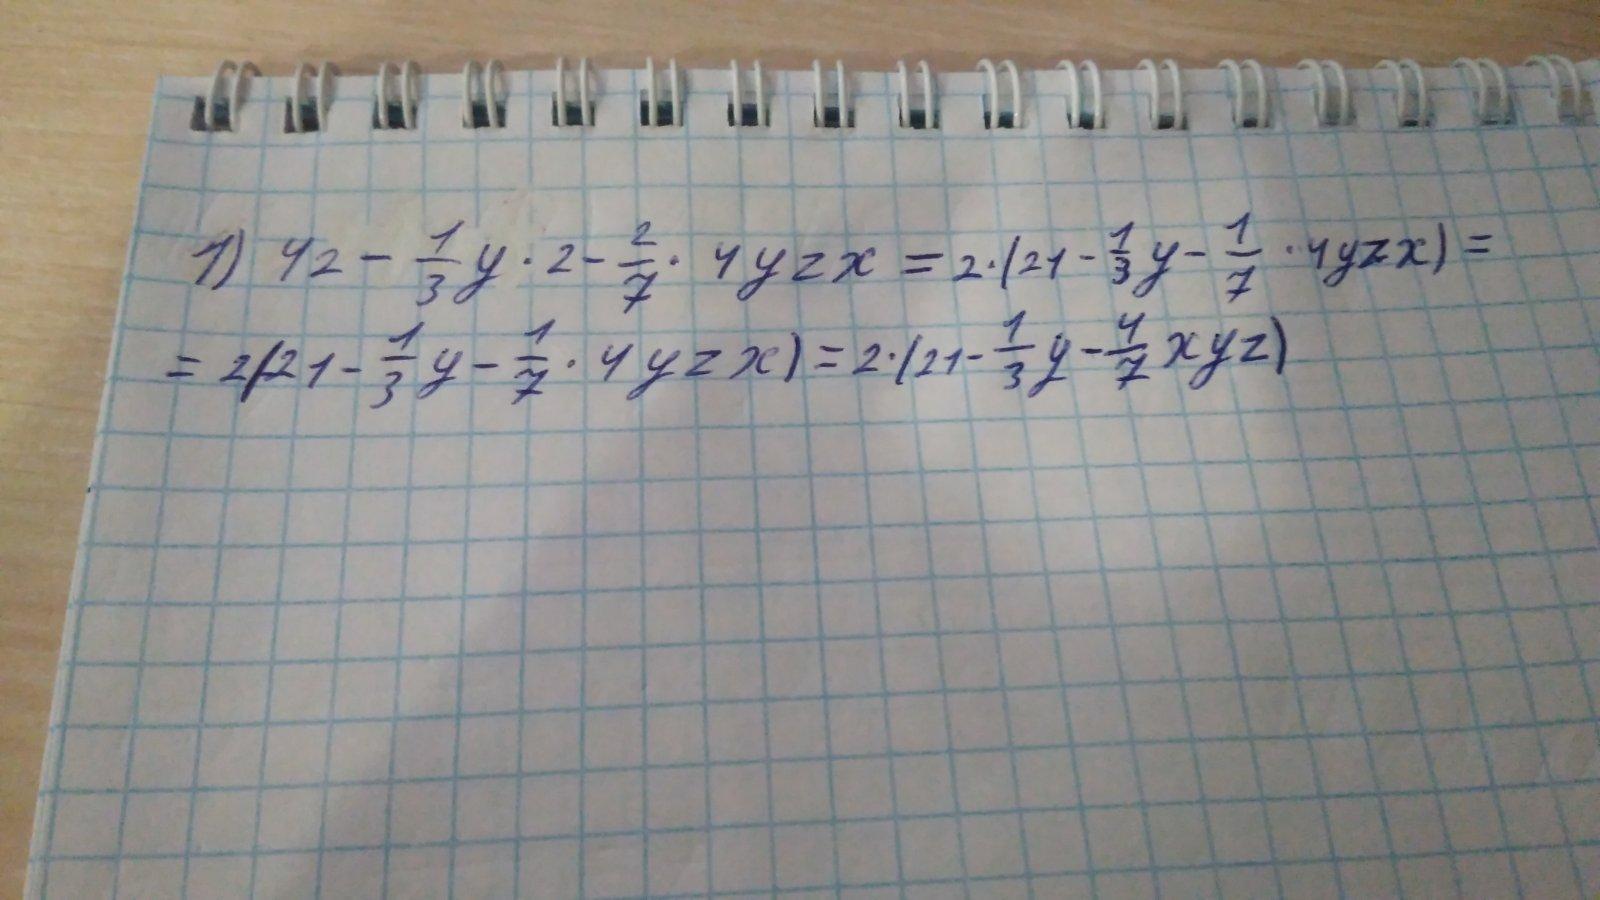 1) 42 - 1/3 y · 2 - 2/7 · 4yzx = 2·(21 - 1/3 y - 1/7 · 4yzx) =
= 2(21 - 1/3 y - 1/7 · 4yzx) = 2·(21 - 1/3 y - 4/7 xyz)